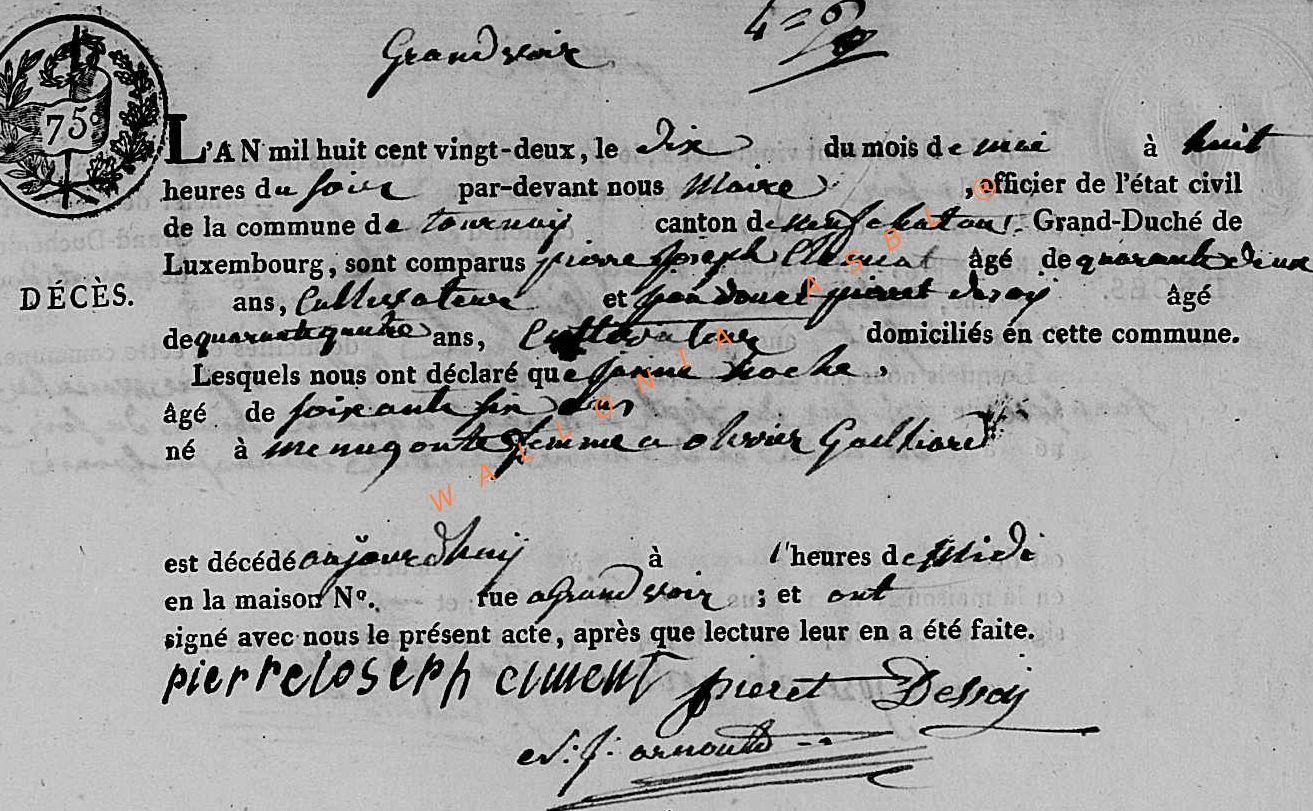 Grandvoir
4 = 9
75
L'AN mil huit cent vingt-deux, le dix du mois de mai à huit
heures du soir par-devant nous Maire, officier de l'état civil
de la commune de tournay canton de neufchateau, Grand-Duché de
Luxembourg, sont comparus pierre Joseph Clement âgé de quarante deux
DÉCÈS.
ans, Cultivateur et pierret desoy âgé
de quarante quatre ans, Cultivateur domiciliés en cette commune.
Lesquels nous ont déclaré que hoche,
âgé de soixante sin ans
né à menugoute femme a olivier Gailliard
est décédé aujourdhuy à l'heures de Midi
en la maison Nº. rue a Grandvoir ; et ont
signé avec nous le présent acte, après que lecture leur en a été faite.
pierre Joseph clment pieret Dessoy
J. arnould
WALLONIA ASBL ®